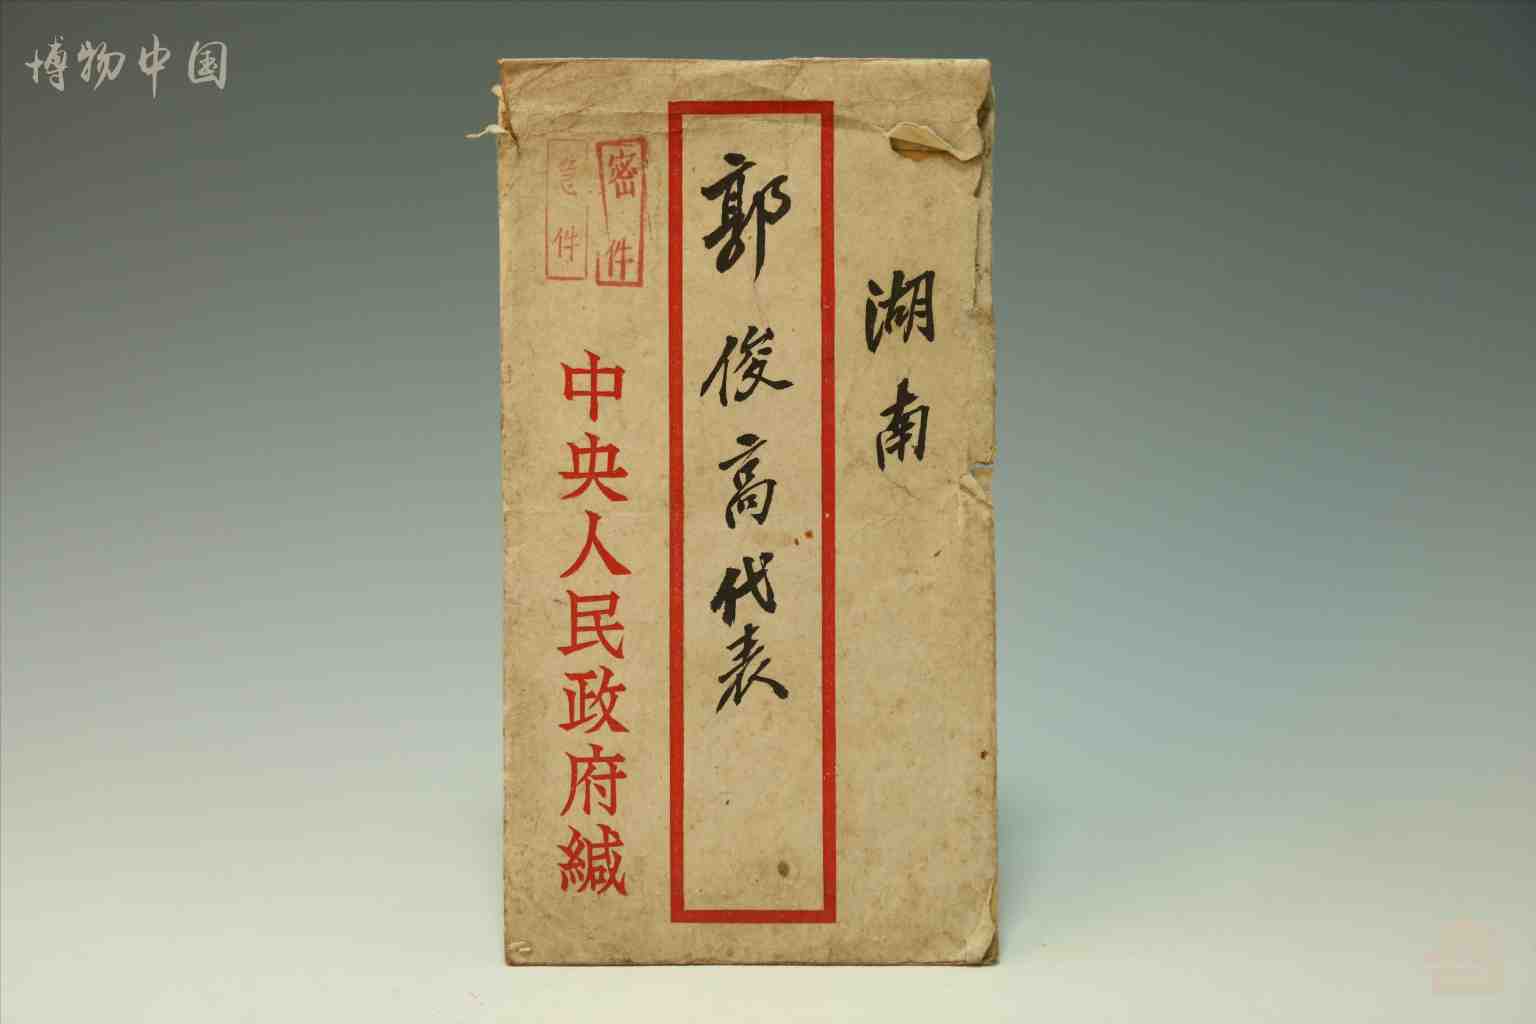 博物中国
湖南
郭俊高代表
密件
急件
中央人民政府緘